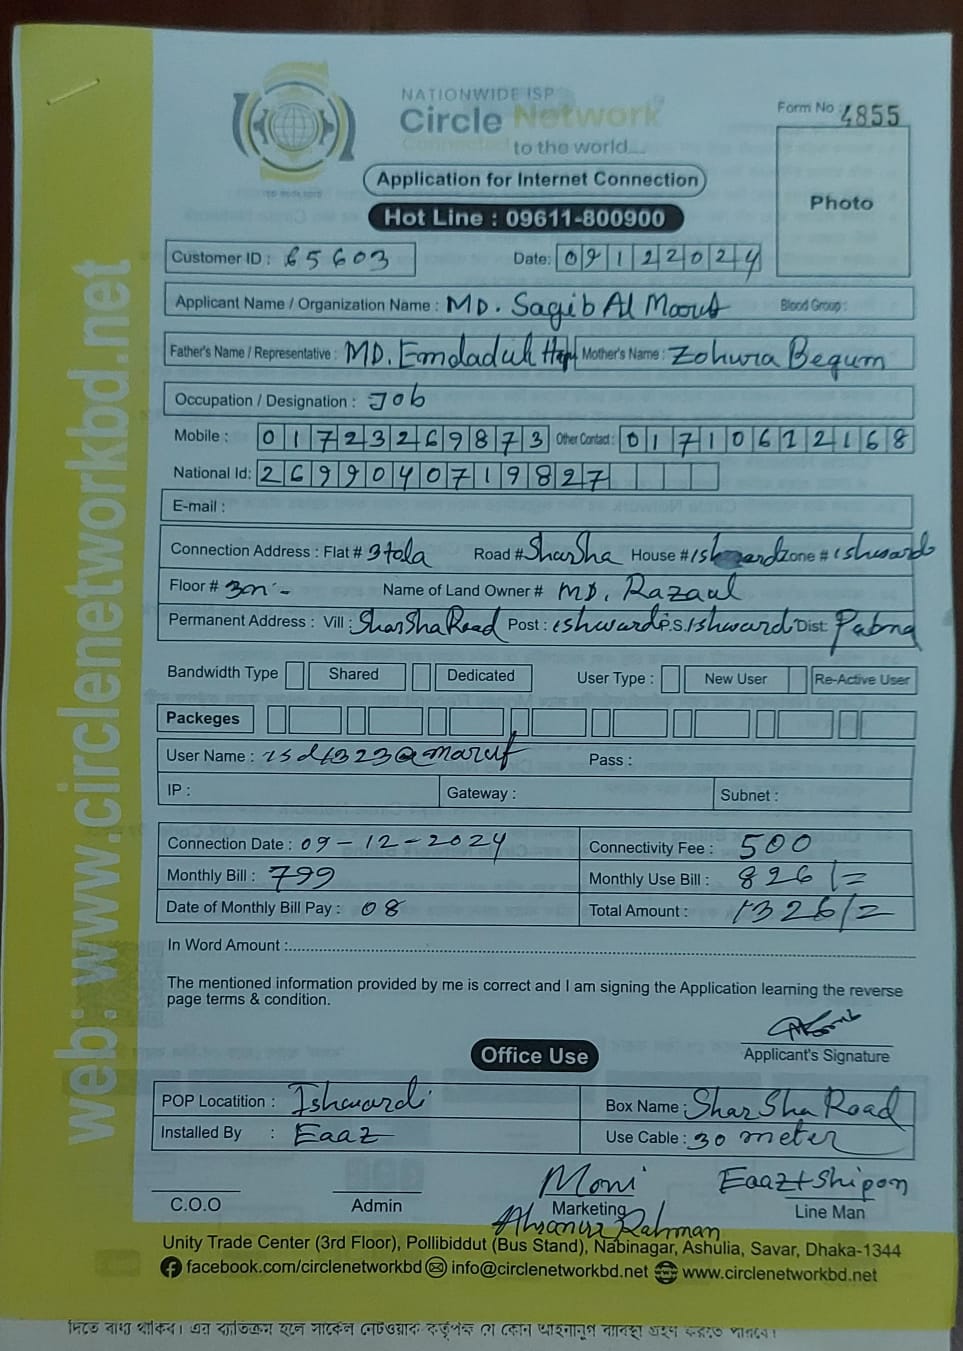 NATIONWIDE ISP
Circle Network
Connected to the world...
Form No : 4855
Photo
Application for Internet Connection
Hot Line : 09611-800900
Customer ID : 65603
Date: 09122024
Applicant Name / Organization Name : MD. Saqib Al Maruf
Blood Group :
Father's Name / Representative : MD. Emdadul Mother's Name : Zohura Begum
Occupation / Designation : Job
Mobile : 01723269873 Other Contact : 01710612168
National Id: 2699040719827
E-mail :
Connection Address : Flat # 3tola Road # SharSha House # Zone # ishwardi
Floor # Name of Land Owner # MD. Razaul
Permanent Address : Vill : SharSha Road Post : ishwardi P.S. Ishwardi Dist: Pabna
Bandwidth Type Shared Dedicated User Type : New User Re-Active User
Packeges
User Name : isd1323@maruf Pass :
IP : Gateway : Subnet :
Connection Date : 09-12-2024 Connectivity Fee : 500
Monthly Bill : 799 Monthly Use Bill : 826/=
Date of Monthly Bill Pay : 08 Total Amount : 1326/=
In Word Amount :
The mentioned information provided by me is correct and I am signing the Application learning the reverse
page terms & condition.
Applicant's Signature
Office Use
POP Locatition : Ishwardi Box Name : SharSha Road
Installed By : Eaaz Use Cable : 30 meter
Moni Eaaz+Shipon
C.O.O Admin Marketing Line Man
Ahsanur Rahman
Unity Trade Center (3rd Floor), Pollibiddut (Bus Stand), Nabinagar, Ashulia, Savar, Dhaka-1344
facebook.com/circlenetworkbd info@circlenetworkbd.net www.circlenetworkbd.net
web: www.circlenetworkbd.net
দিতে বাধ্য থাকিব। এর ব্যতিক্রম হলে সার্কেল নেটওয়ার্ক কর্তৃপক্ষ যে কোন আইনানুগ ব্যবস্থা গ্রহণ করতে পারবে।